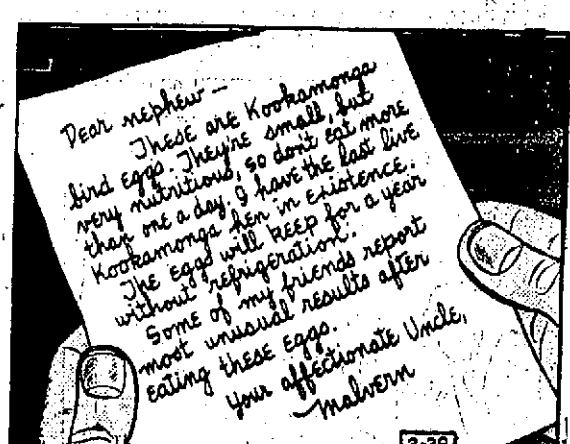 Dear nephew —
These are Kookamonga
bird eggs. They're small, but
very nutritious, so don't eat more
than one a day. I have the last live
Kookamonga hen in existence.
The eggs will keep for a year
without refrigeration.
Some of my friends report
most unusual results after
eating these eggs.
Your affectionate Uncle,
Malvern
3-30